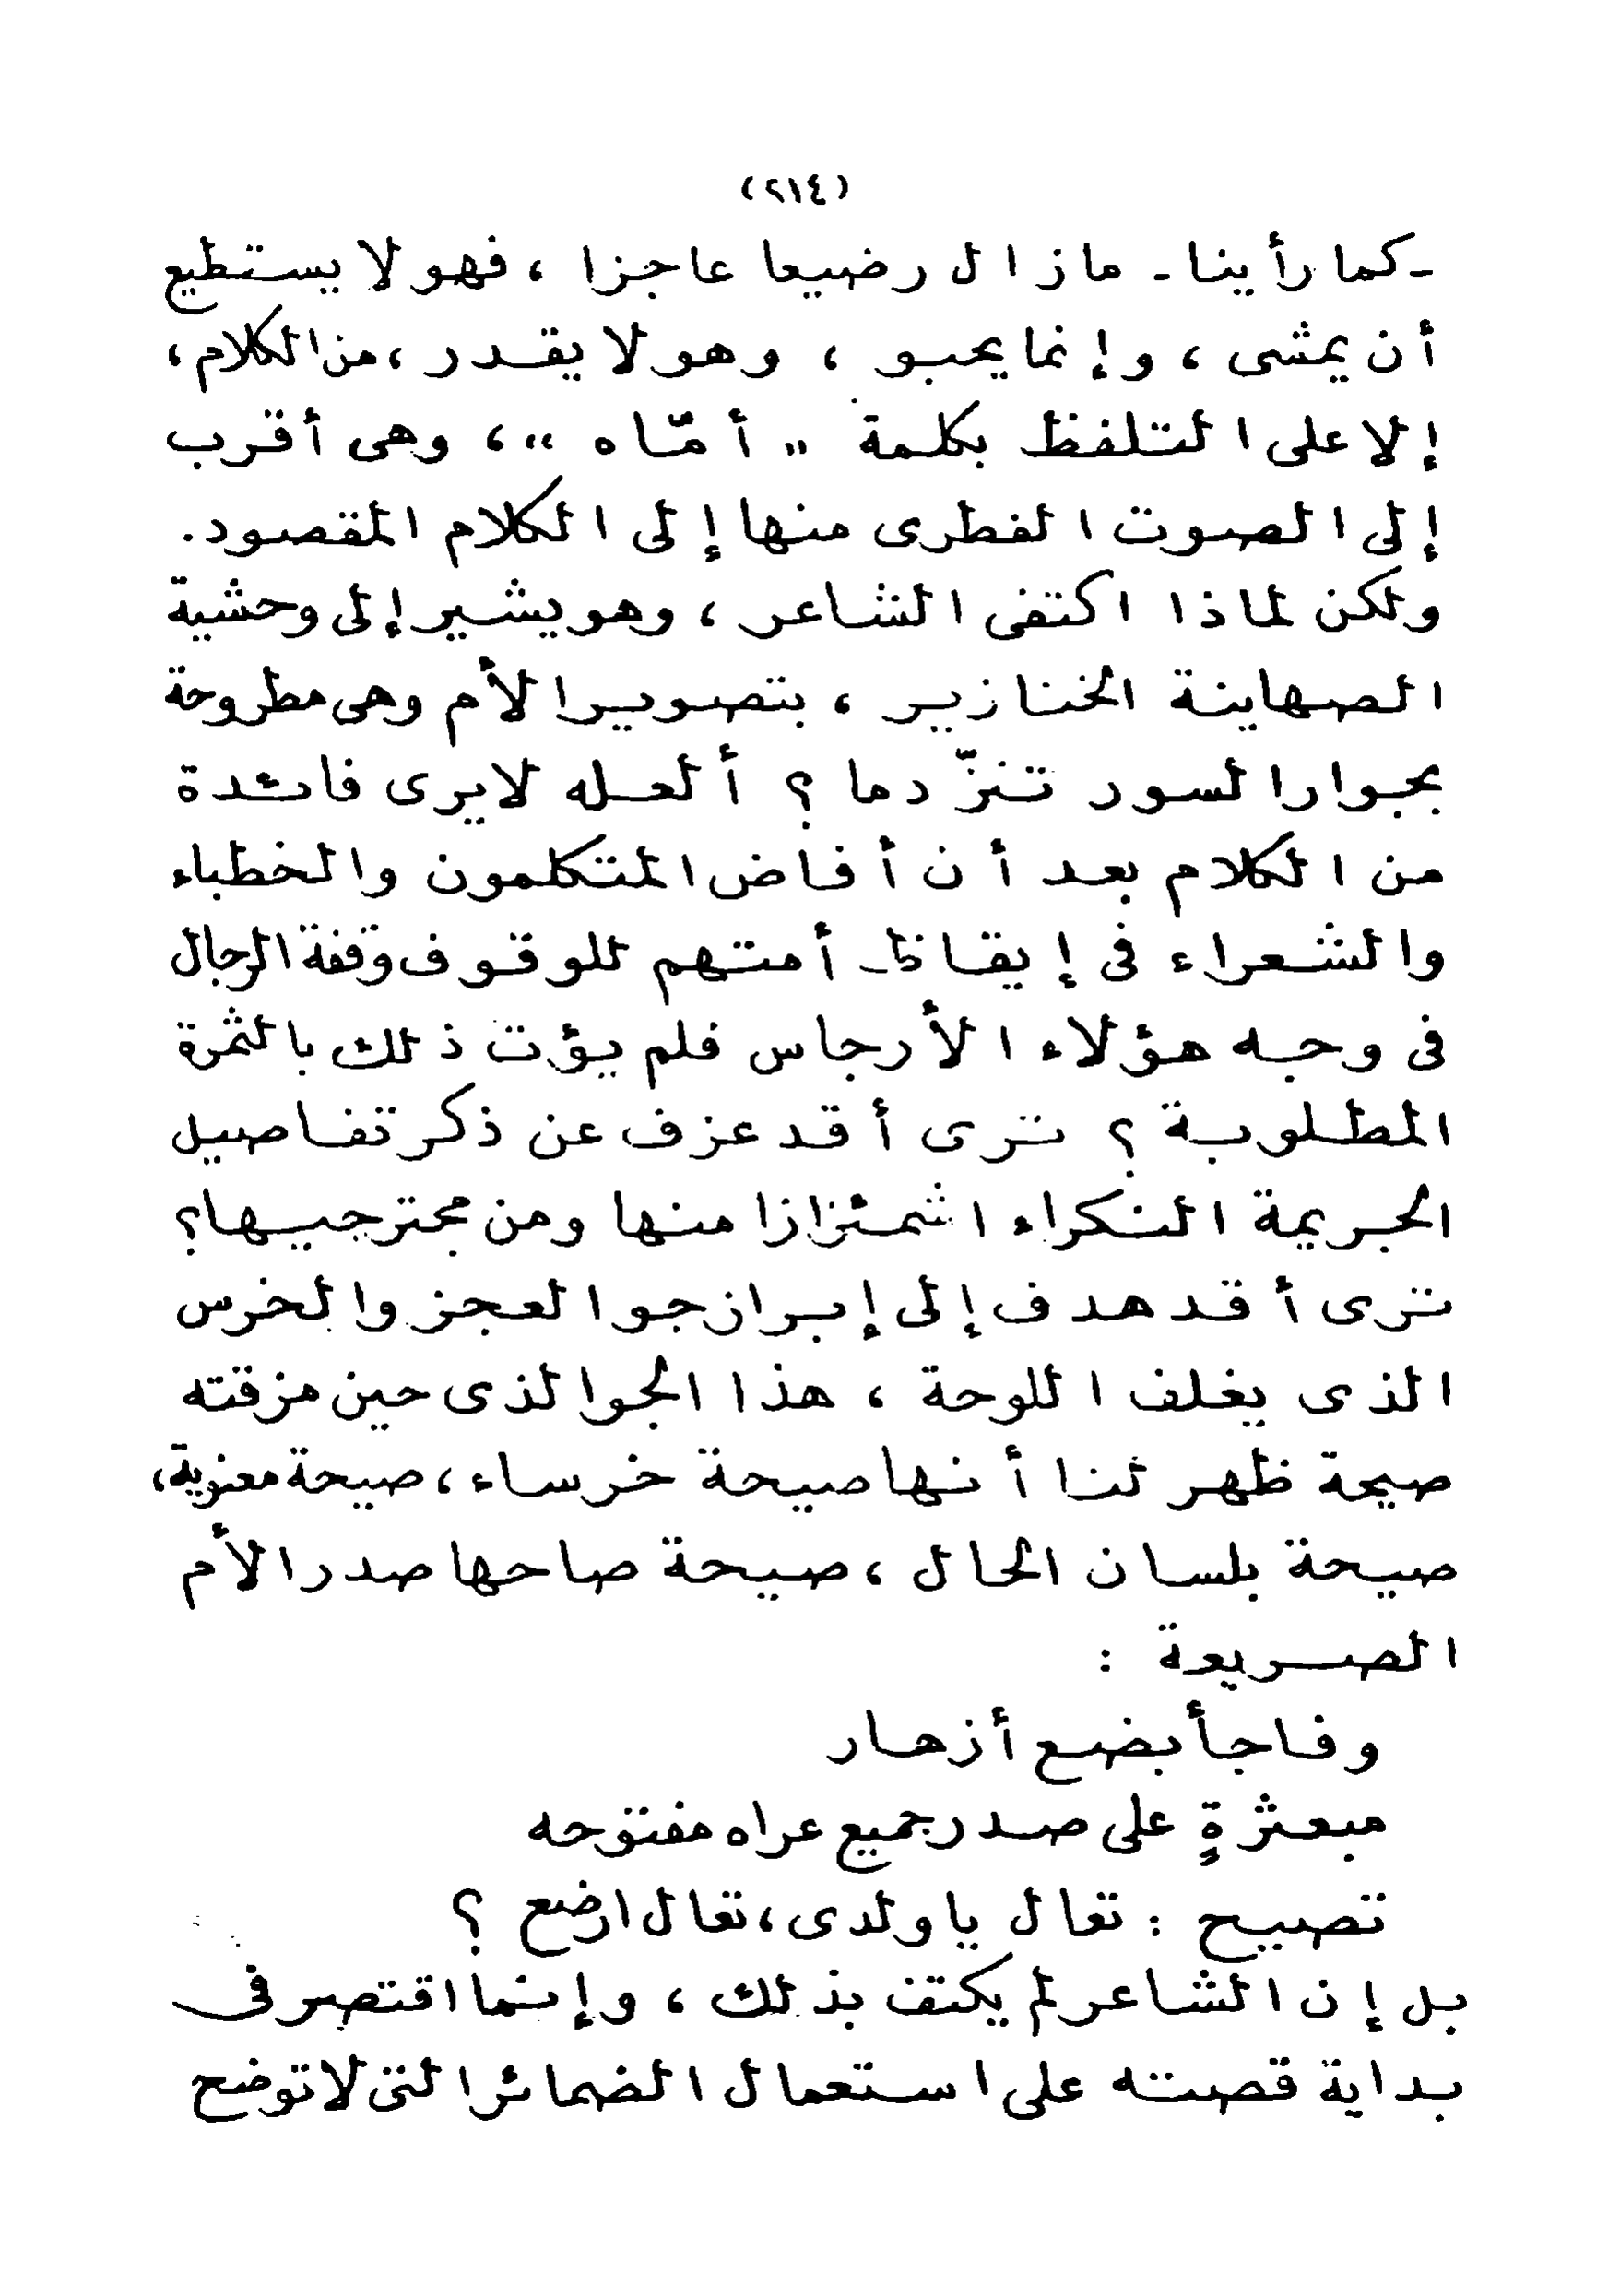 (٢١٤)
- كما رأينا - مازال رضيعا عاجزا ، فهو لا يستطيع
أن يمشى ، وإنما يحبو ، وهو لا يقدر ، من الكلام ،
إلا على التلفظ بكلمة " أمّاه " ، وهى أقرب
إلى الصوت الفطرى منها إلى الكلام المقصود .
ولكن لماذا اكتفى الشاعر ، وهو يشير إلى وحشية
الصهاينة الخنازير ، بتصوير الأم وهى مطروحة
بجوار السور تنزّ دما ؟ ألعله لا يرى فائدة
من الكلام بعد أن أفاض المتكلمون والخطباء
والشعراء فى إيقاظ أمتهم للوقوف وقفة الرجال
فى وجه هؤلاء الأرجاس فلم يؤت ذلك بالثمرة
المطلوبة ؟ ترى أقد عزف عن ذكر تفاصيل
الجريمة النكراء اشمئزازا منها ومن مجترجيها ؟
ترى أقد هدف إلى إبراز جو العجز والخرس
الذى يغلف اللوحة ، هذا الجو الذى حين مزقته
صيحة ظهر لنا أنها صيحة خرساء ، صيحة معنوية ،
صيحة بلسان الحال ، صيحة صاحها صدر الأم
الصريعة :
وفاجأ بضع أزهار
مبعثرةٍ على صدر جميع عراه مفتوحه
تصيح : تعال يا ولدى ، تعال ارضع ؟
بل إن الشاعر لم يكتف بذلك ، وإنما اقتصر فى
بداية قصته على استعمال الضمائر التى لا توضح